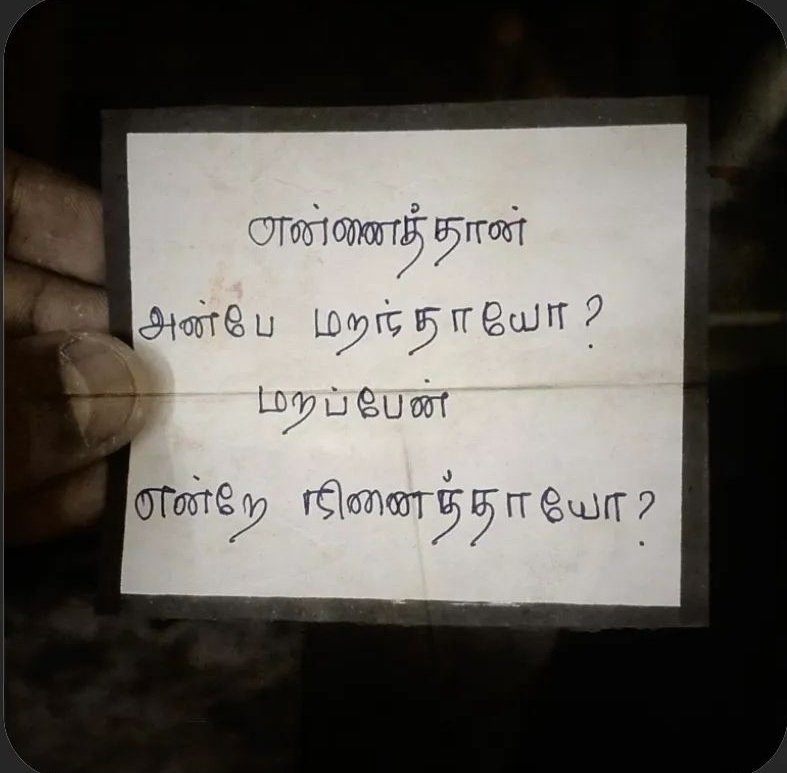 என்னைத்தான்
அன்பே மறந்தாயோ?
மறப்பேன்
என்றே நினைத்தாயோ?